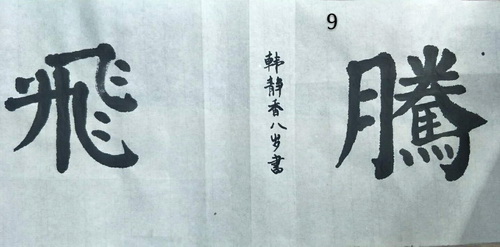 9
騰
韩静香八岁書
飛